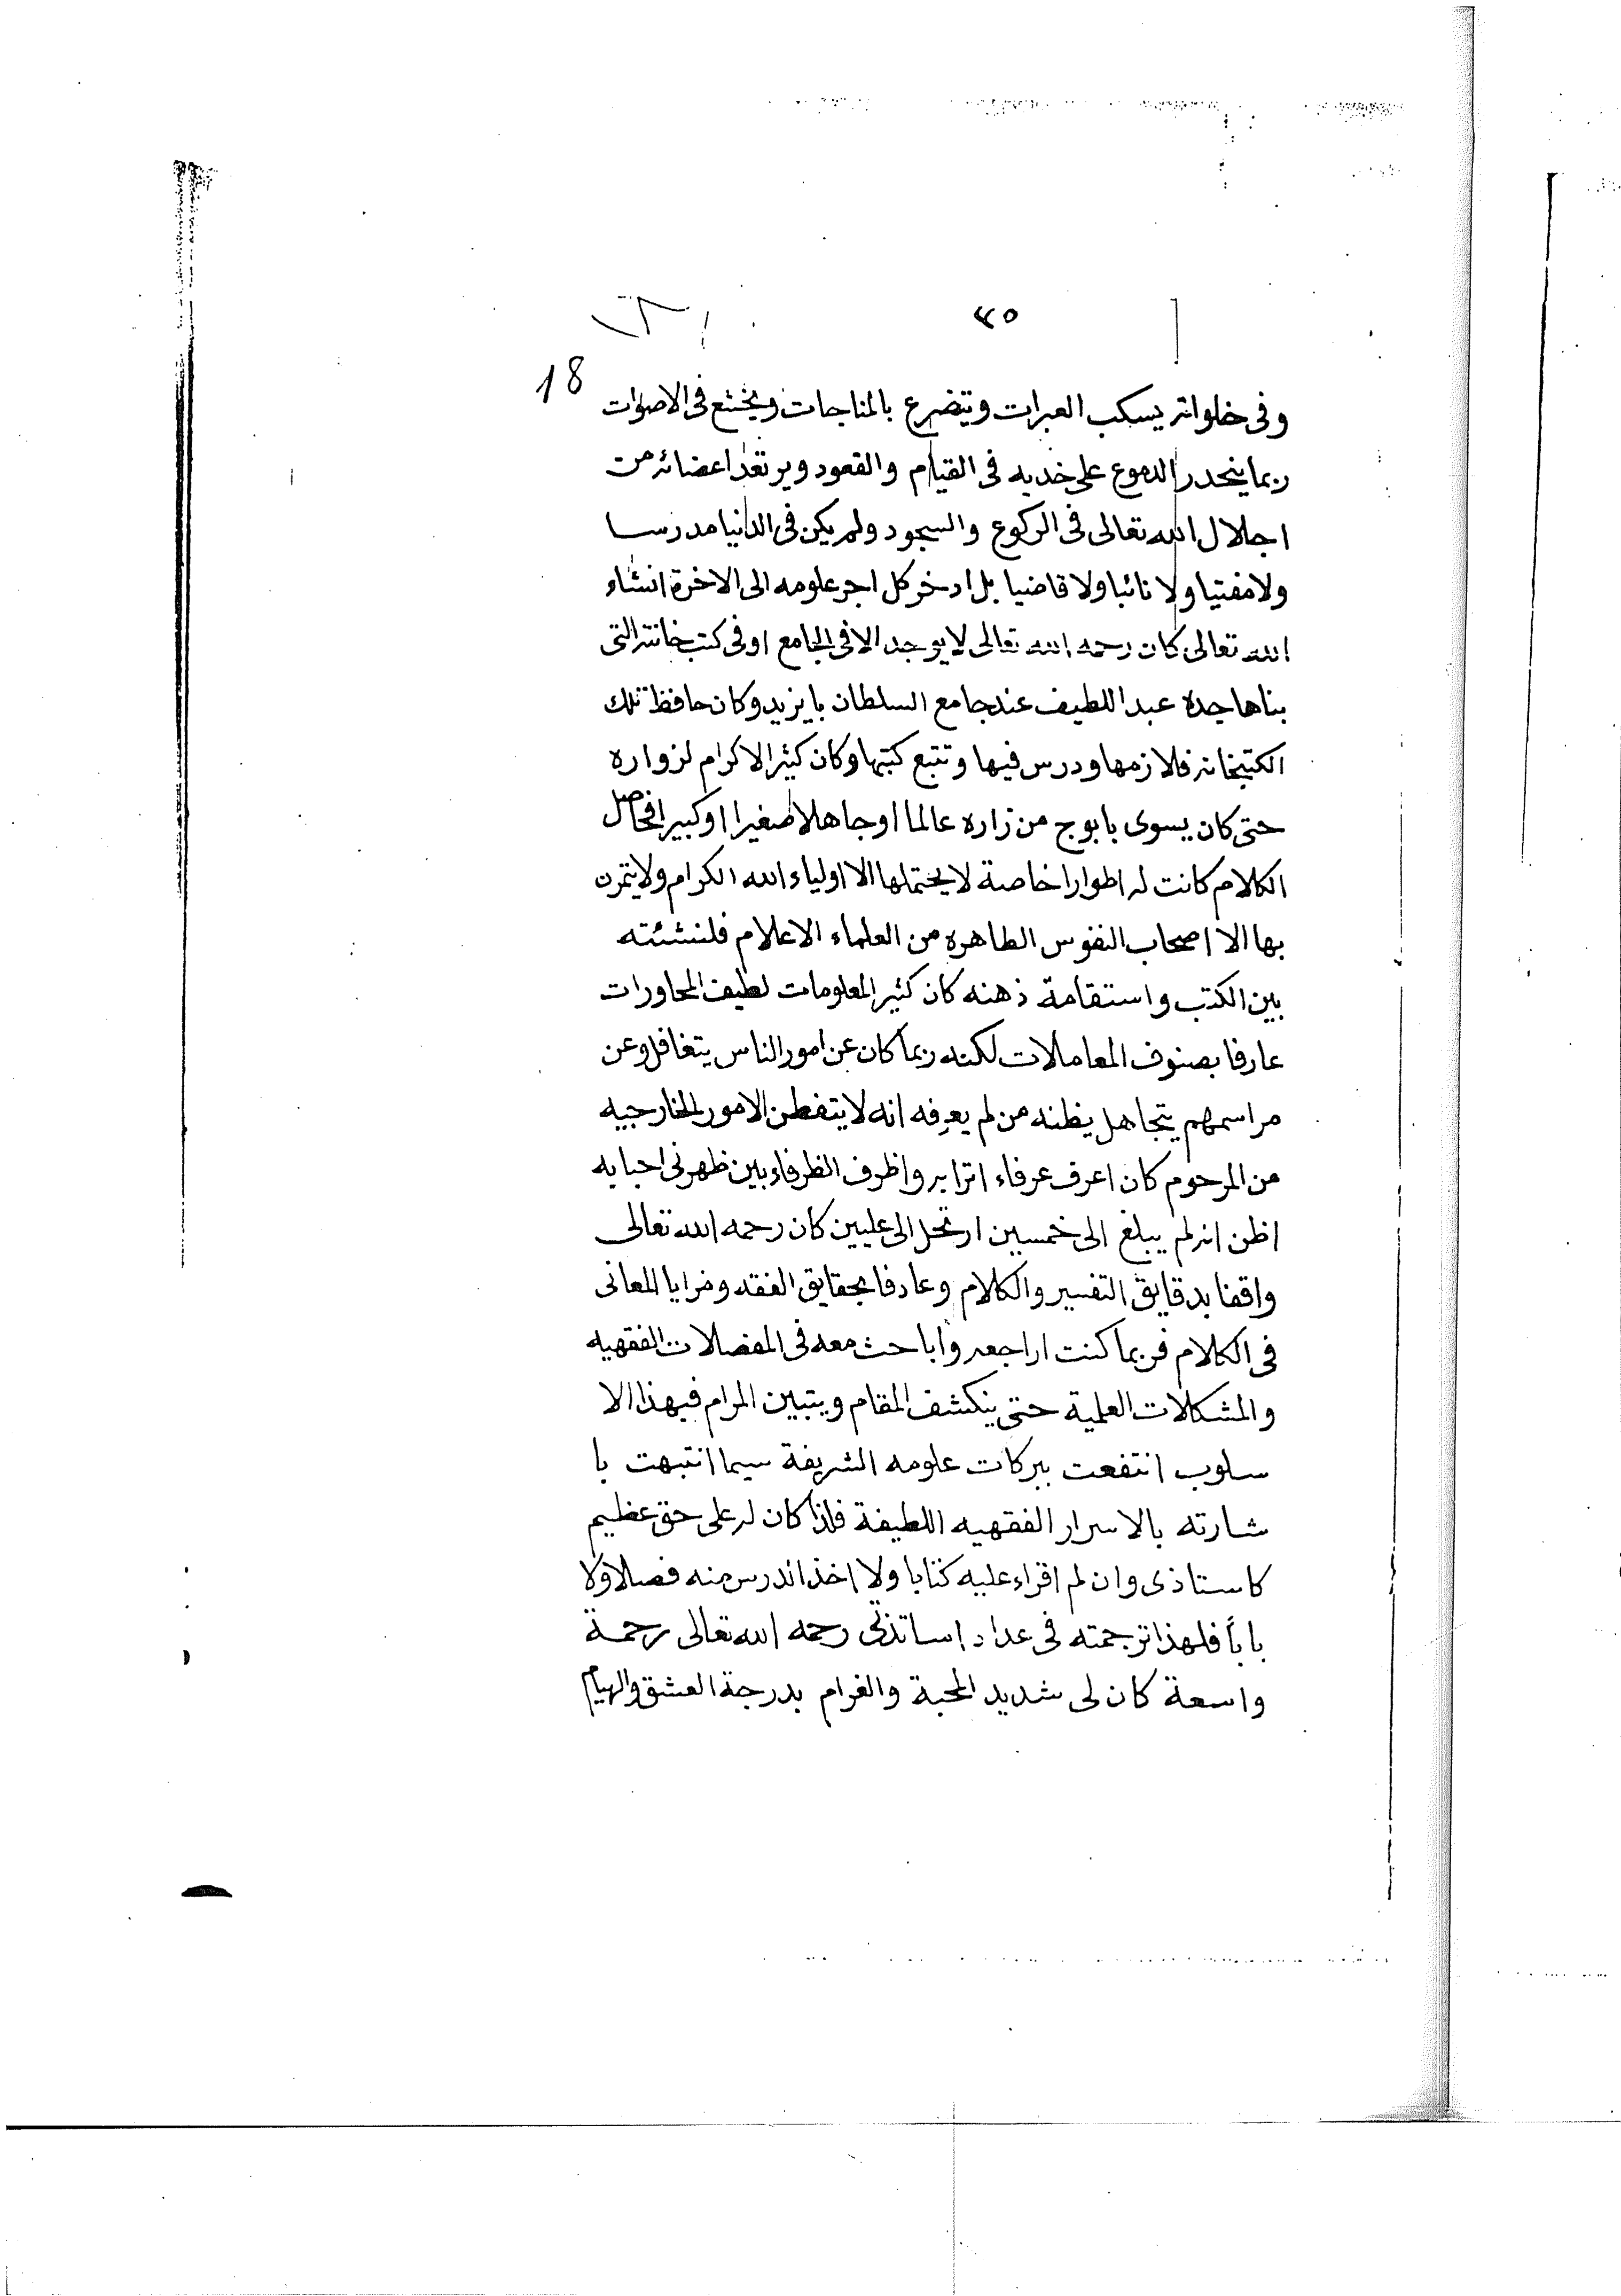 ٣٥
18
وفى خلواته يسكب العبرات ويتضرع بالمناجات ويخشع فى الاصوات
ربما ينحدر الدموع على خديه فى القيام والقعود ويرتعد اعضائه من
اجلال الله تعالى فى الركوع والسجود ولم يكن فى الدنيا مدرسا
ولا مفتيا ولا نائبا ولا قاضيا بل ادخر كل اجر علومه الى الاخرة انشاء
الله تعالى كان رحمه الله تعالى لا يوجد الا فى الجامع او فى كتبخانته التى
بناها جده عبد اللطيف عند جامع السلطان بايزيد وكان حافظ تلك
الكتبخانه فلازمها ودرس فيها وتتبع كتبها وكان كثير الاكرام لزواره
حتى كان يسوى بابوج من زاره عالما او جاهلا صغيرا او كبيرا فحاصل
الكلام كانت له اطوارا خاصة لا يحتملها الا اولياء الله الكرام ولا يتمرن
بها الا اصحاب النفوس الطاهره من العلماء الاعلام فلنشئته
بين الكتب واستقامة ذهنه كان كثير المعلومات لطيف المحاورات
عارفا بصنوف المعاملات لكنه ربما كان عن امور الناس يتغافل وعن
مراسمهم يتجاهل يظنه من لم يعرفه انه لا يتفطن الامور الخارجيه
من المرحوم كان اعرف عرفاء اترابه واظرف الظرفاء بين ظهرنى احبابه
اظن انه لم يبلغ الى خمسين ارتحل الى عليين كان رحمه الله تعالى
واقفا بدقايق التفسير والكلام وعارفا بحقايق الفقه ومزايا المعانى
فى الكلام فربما كنت اراجعه واباحث معه فى المفصلات الفقهيه
والمشكلات العلمية حتى ينكشف المقام ويتبين المرام فبهذا الا
سلوب انتفعت ببركات علومه الشريفة سيما انتبهت با
شارته بالاسرار الفقهيه اللطيفة فلذا كان له على حق عظيم
كاستاذى وان لم اقراء عليه كتابا ولا اخذ اندرس منه فصلا ولا
بابأ فلهذا ترجمته فى عداد اساتذتى رحمه الله تعالى رحمة
واسعة كان لى شديد المحبة والغرام بدرجة العشق والهيام